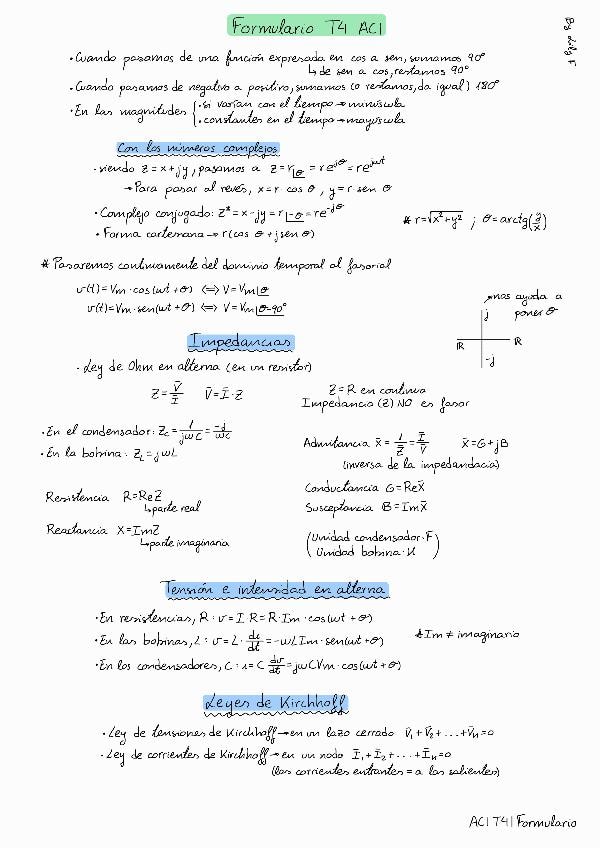 Formulario T4 ACI
By Lidy F
· Cuando pasamos de una función expresada en cos a sen, sumamos 90°
↳ de sen a cos, restamos 90°
· Cuando pasamos de negativo a positivo, sumamos (o restamos, da igual) 180°
· En las magnitudes { · si varían con el tiempo → minúscula
· constantes en el tiempo → mayúscula
Con los números complejos
· siendo z = x + jy, pasamos a z = r∟θ = re^jθ = re^jωt
→ Para pasar al revés, x = r · cos θ, y = r · sen θ
· Complejo conjugado: z* = x - jy = r∟-θ = re^-jθ
* r = √x² + y² ; θ = arctg(y/x)
· Forma cartesiana → r(cos θ + j sen θ)
* Pasaremos continuamente del dominio temporal al fasorial
v(t) = Vm · cos(ωt + θ) ⟺ V = Vm∟θ
v(t) = Vm · sen(ωt + θ) ⟺ V = Vm∟θ-90°
nos ayuda a
poner θ
j
R R
-j
Impedancias
· Ley de Ohm en alterna (en un resistor)
Z = V̄/Ī V̄ = Ī · Z
Z = R en continua
Impedancia (Z) NO es fasor
· En el condensador: Zc = 1/jωC = -j/ωC
· En la bobina: ZL = jωL
Admitancia Ȳ = 1/Z̄ = Ī/V̄ Ȳ = G + jB
(inversa de la impedandacia)
Resistencia R = Re Z
↳ parte real
Reactancia X = Im Z
↳ parte imaginaria
Conductancia G = Re Ȳ
Susceptancia B = Im Ȳ
(Unidad condensador · F
Unidad bobina · H)
Tensión e intensidad en alterna
· En resistencias, R : v = I · R = R · Im · cos(ωt + θ)
· En las bobinas, L : v = L · di/dt = -ωL Im · sen(ωt + θ)
* Im ≠ imaginario
· En los condensadores, C : i = C dv/dt = jωCVm · cos(ωt + θ)
Leyes de Kirchhoff
· Ley de tensiones de Kirchhoff → en un lazo cerrado V̄₁ + V̄₂ + ... + V̄n = 0
· Ley de corrientes de Kirchhoff → en un nodo Ī₁ + Ī₂ + ... + Īn = 0
(las corrientes entrantes = a las salientes)
ACI T4 | Formulario